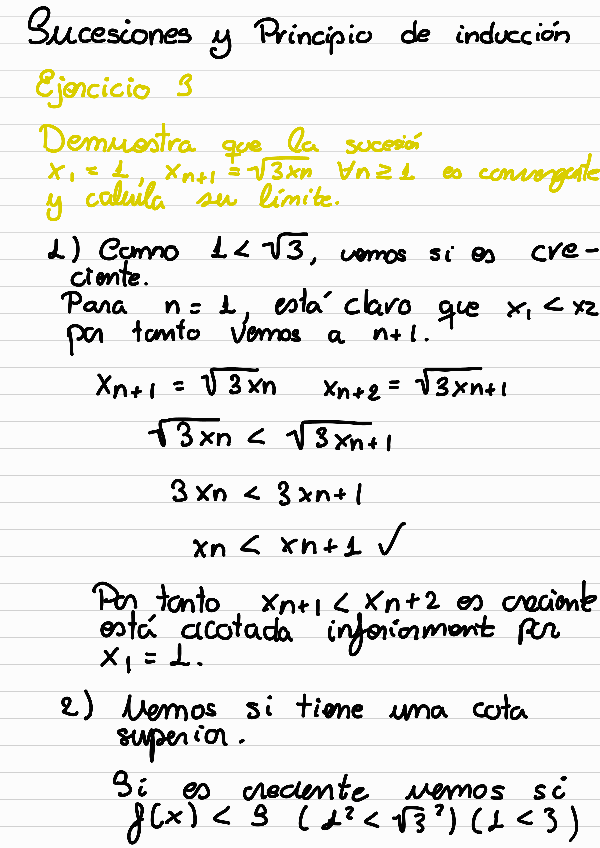 Sucesiones y Principio de inducción
Ejercicio 3
Demuestra que la sucesión
x₁ = 1, xₙ₊₁ = √3xₙ ∀n ≥ 1 es convergente
y calcula su límite.
1) Como 1 < √3, vemos si es cre-
ciente.
Para n = 1, está claro que x₁ < x₂
por tanto vemos a n+1.
xₙ₊₁ = √3xₙ xₙ₊₂ = √3xₙ₊₁
√3xₙ < √3xₙ₊₁
3xₙ < 3xₙ₊₁
xₙ < xₙ₊₁ ✓
Por tanto xₙ₊₁ < xₙ₊₂ es creciente
está acotada inferiorment por
x₁ = 1.
2) Vemos si tiene una cota
superior.
Si es creciente vemos si
f(x) < 3 (1² < √3²) (1 < 3)